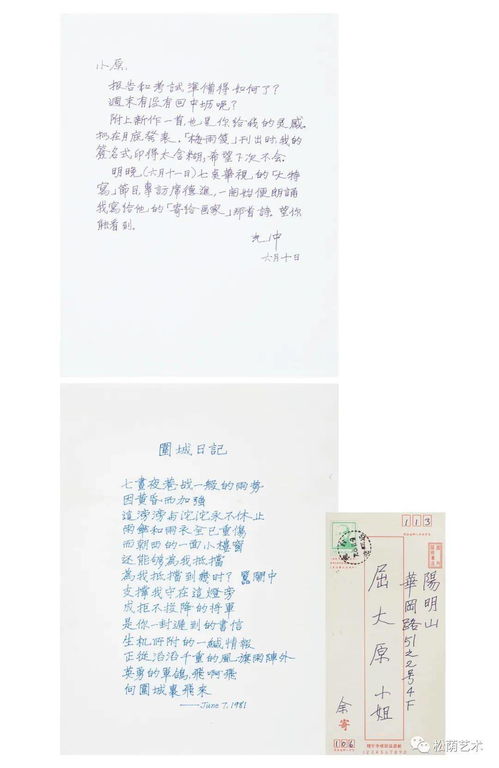 小原，
报告和考試準備得如何了？
週末有沒有回中坜呢？
附上新作一首，也是你给我的灵感。
擬在月底發表。「梅雨箋」刊出时，我的
簽名式印得太含糊，希望下次不会。
明晚（六月十一日）七点華視的「大特
寫」節目專訪席德進，一開始便朗誦
我寫给他的「寄给画家」那首詩。望你
能看到。
光中
六月十日
圍城日記
七晝夜巷战一般的雨势
因黄昏而加強
這滂滂与沱沱永不休止
雨傘和雨衣全已重傷
而朝西的一面小樓窗
还能够為我抵擋
為我抵擋到幾时？驚閙中
支撐我守在這燈旁
成拒不投降的将軍
是你一封遲到的書信
生机所附的一緘情報
正從浩浩千重的風旗雨陣外
英勇的軍鴿，飛啊飛
向圍城裏飛来
——June 7, 1981
113
陽明山
華岡路51之2号4F
屈大原小姐
余寄
106
松荫艺术